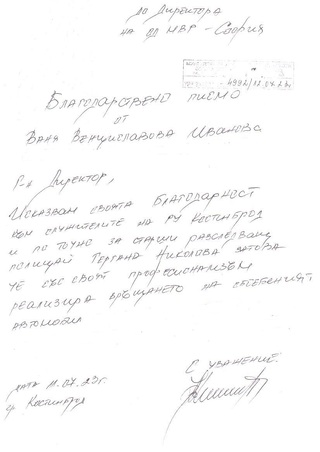 до Директора
на ОД МВР - София
4992/12.07.23г
Благодарствено писмо
от
Ваня Венциславова Иванова
Г-н Директор,
Исказвам своята благодарност
към служителите на РУ Костинброд
и по точно за старши разследващ
полицай Гергана Николова затова
че със своят професионамзъм
реализира връщането на собствения
автомобил
С уважение:
дата 11.07.23г.
гр Костинброд